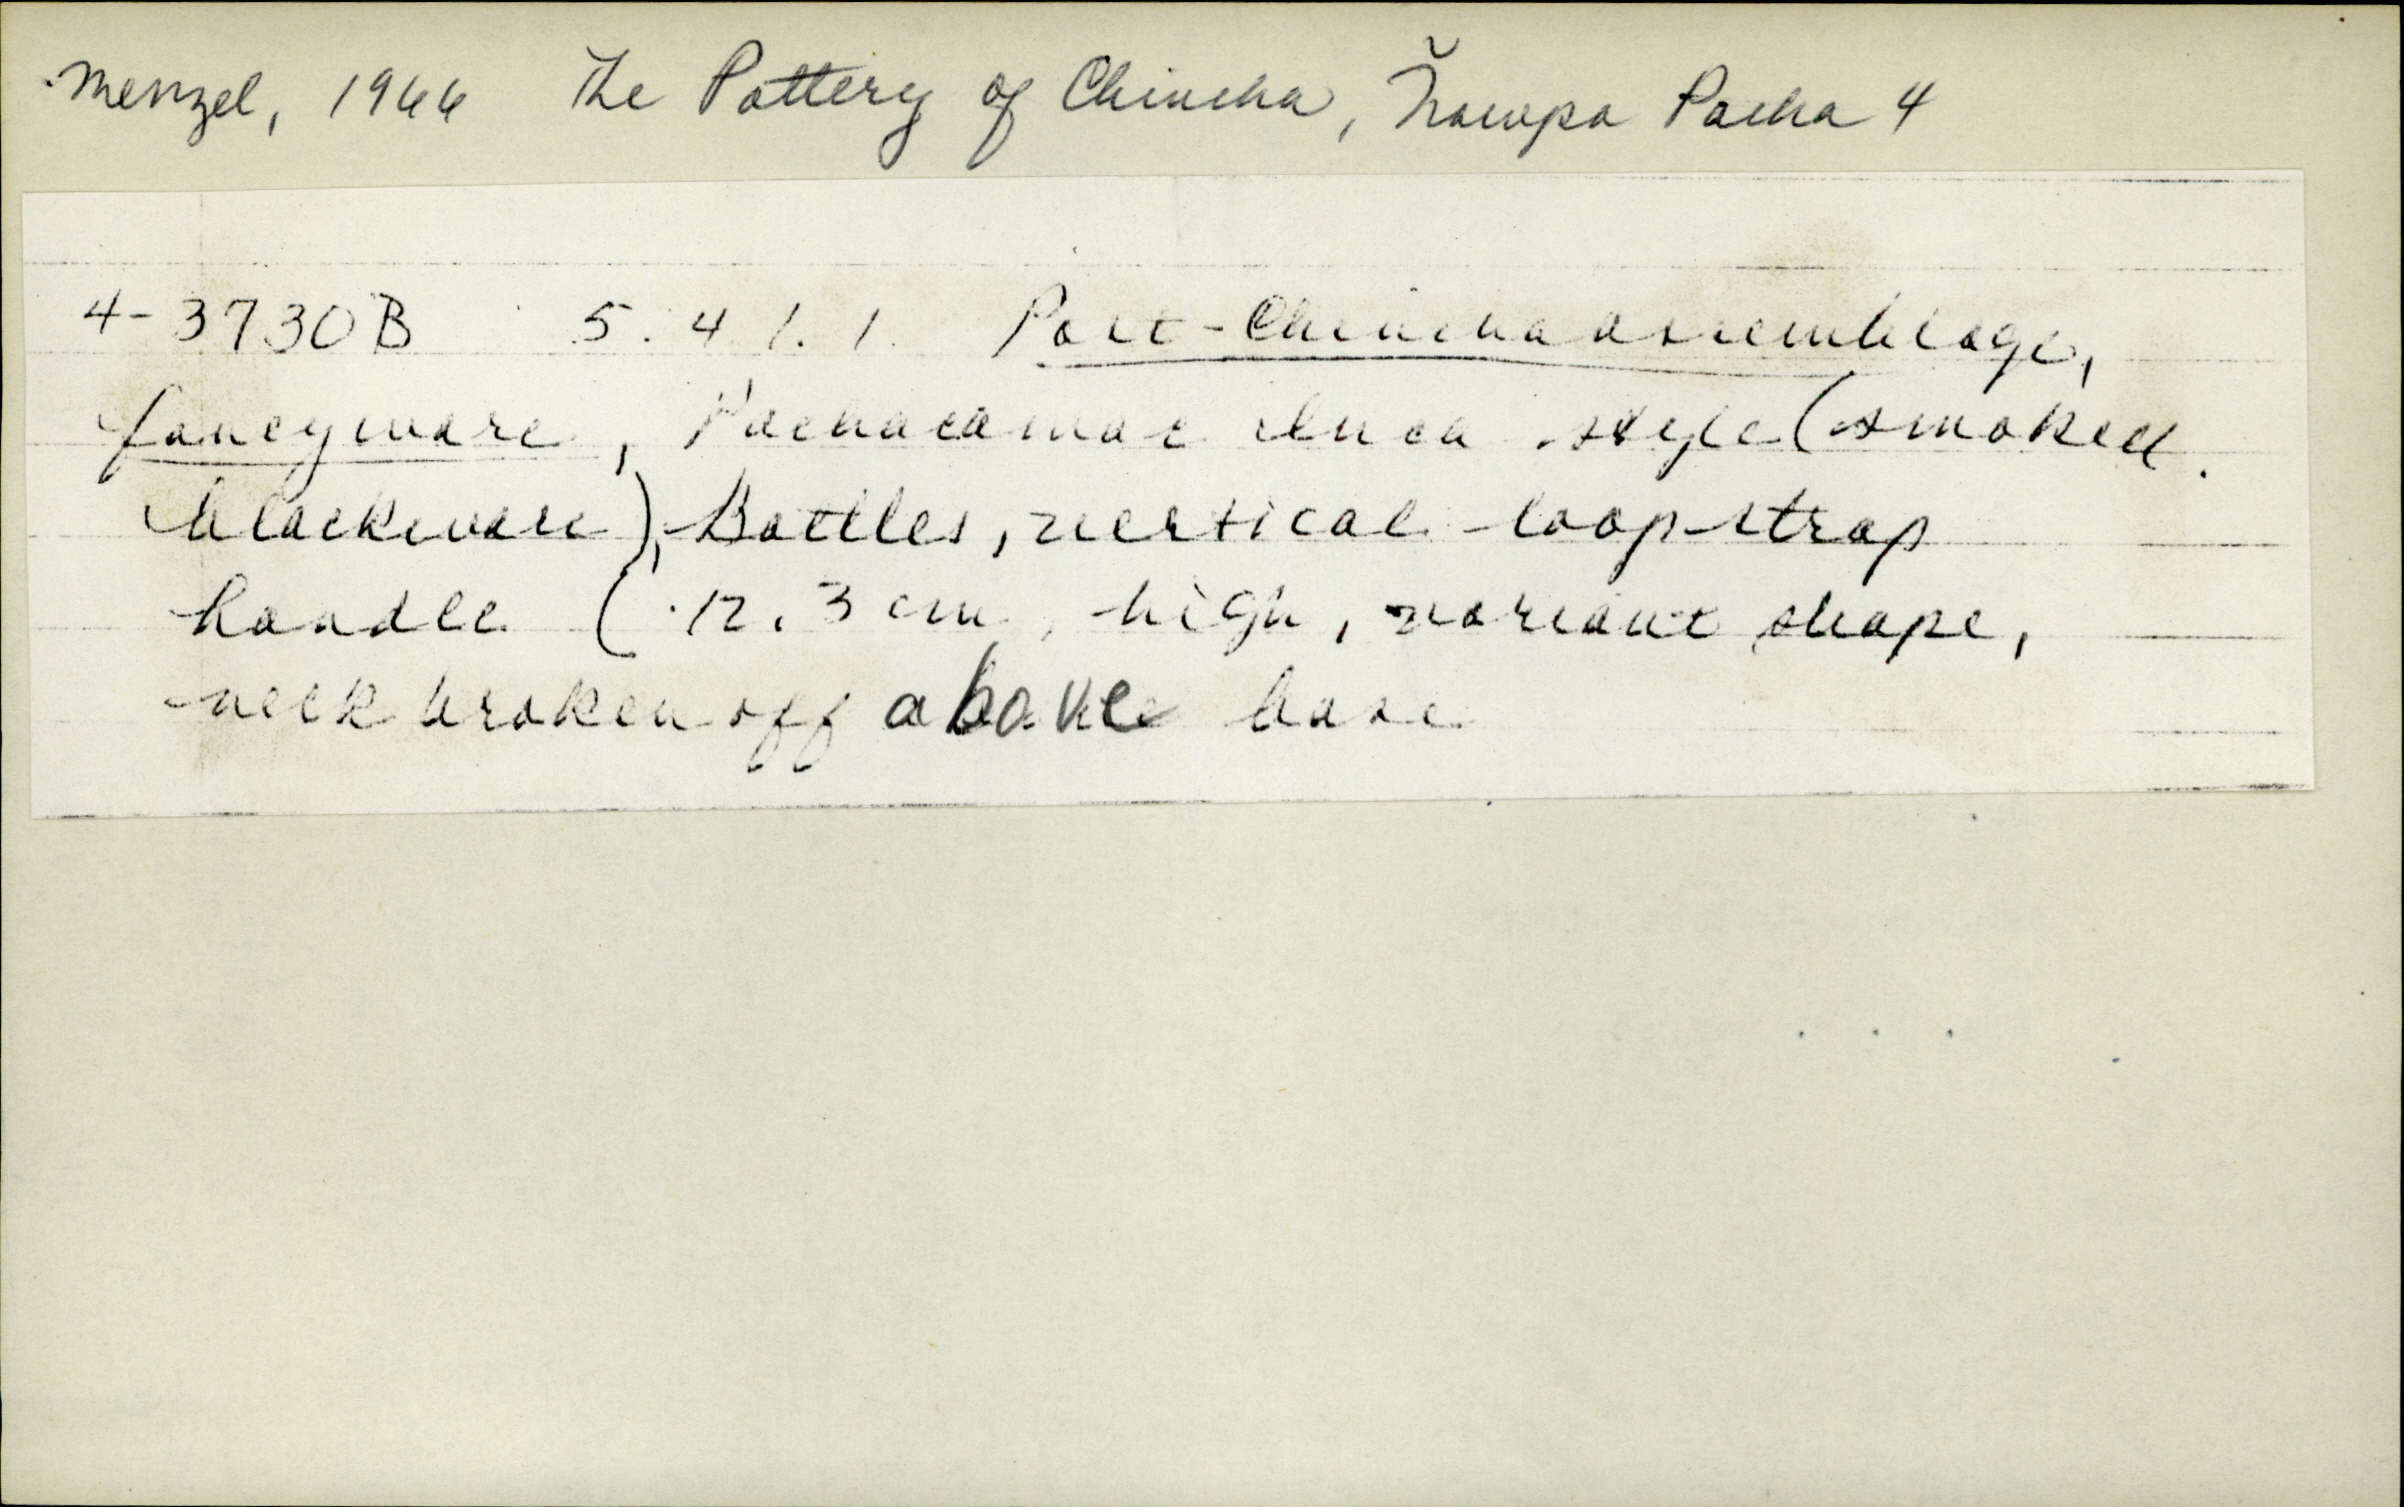 Menzel, 1966 The Pottery of Chincha, Ñawpa Pacha 4
4-3730B 5.4.1.1. Post-Chincha assemblage,
fancyware, Pachacamac Inca style (smoked
blackware), Bottles, vertical loop-strap
handle (12.3 cm. high, variant shape,
neck broken off above base